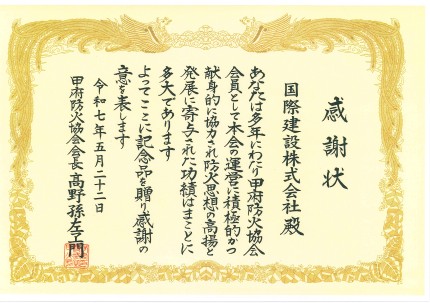 感謝状
国際建設株式会社殿
あなたは多年にわたり甲府防火協会
会員として本会の運営に積極的かつ
献身的に協力され防火思想の高揚と
発展に寄与された功績はまことに
多大であります
よってここに記念品を贈り感謝の
意を表します
令和七年五月二十二日
甲府防火協会会長 高野孫左ヱ門